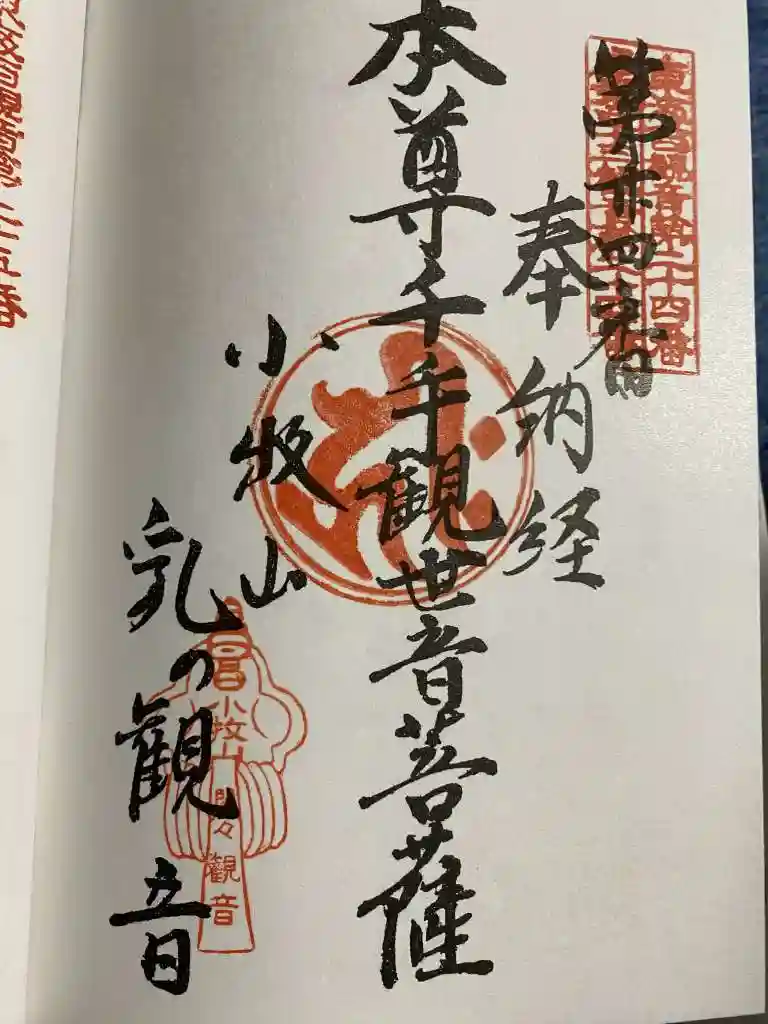 第廿四番
東海百観音第二十四番
奉納経
本尊千手観世音菩薩
小牧山
乳の観音
小牧山
間々観音